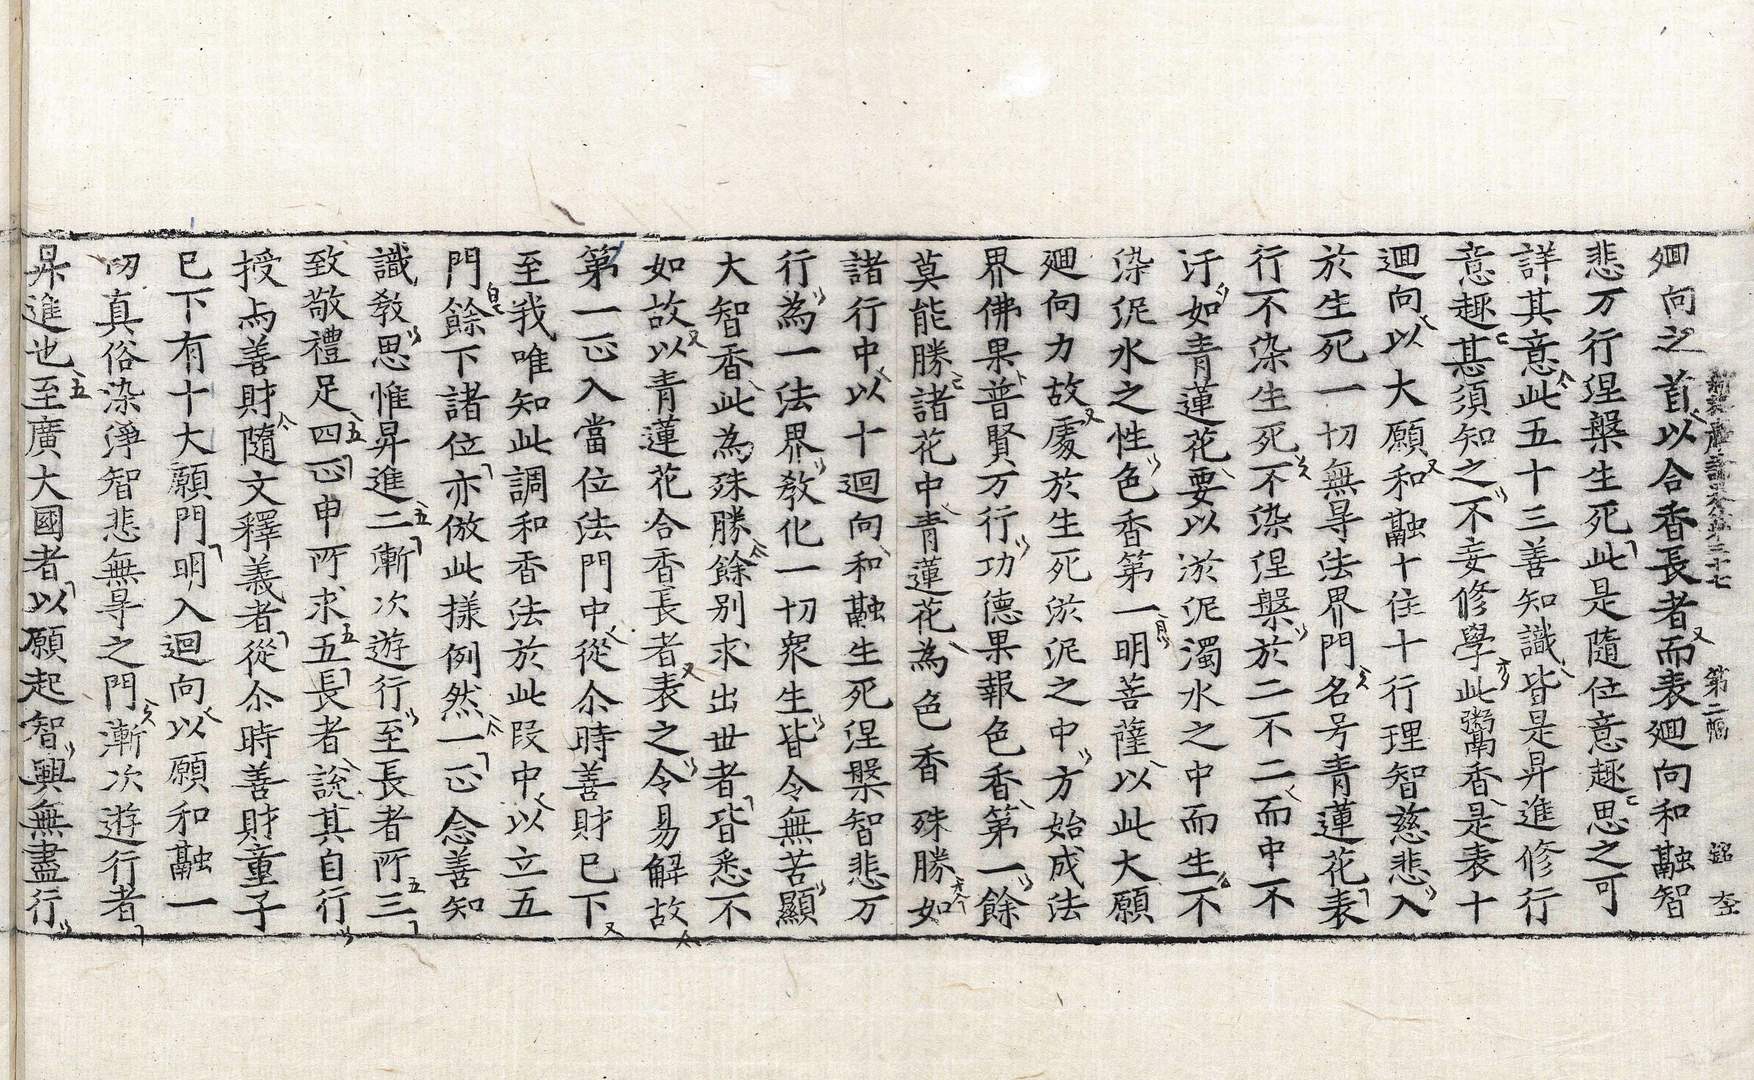 新華嚴論卷第三十七 第二幅 銘 左
廻向之首以合香長者而表廻向和融智
悲万行涅槃生死此是隨位意趣思之可
詳其意此五十三善知識皆是昇進修行
意趣甚須知之不妄修學此鬻香是表十
廻向以大願和融十住十行理智慈悲入
於生死一切無㝵法界門名号青蓮花表
行不染生死不染涅槃於二不二而中不
汙如青蓮花要以淤泥濁水之中而生不
染泥水之性色香第一明菩薩以此大願
廻向力故處於生死淤泥之中方始成法
界佛果普賢万行功德果報色香第一餘
莫能勝諸花中青蓮花為色香殊勝如
諸行中以十迴向和融生死涅槃智悲万
行為一法界教化一切衆生皆令無苦顯
大智香此為殊勝餘別求出世者皆悉不
如故以青蓮花合香長者表之令易解故
第一正入當位法門中從尒時善財已下
至我唯知此調和香法於此叚中以立五
門餘下諸位亦倣此樣例然一正念善知
識教思惟昇進二漸次遊行至長者所三
致敬禮足四正申所求五長者説其自行
授与善財隨文釋義者從尒時善財童子
已下有十大願門明入迴向以願和融一
切真俗染淨智悲無㝵之門漸次遊行者
昇進也至廣大國者以願起智興無盡行